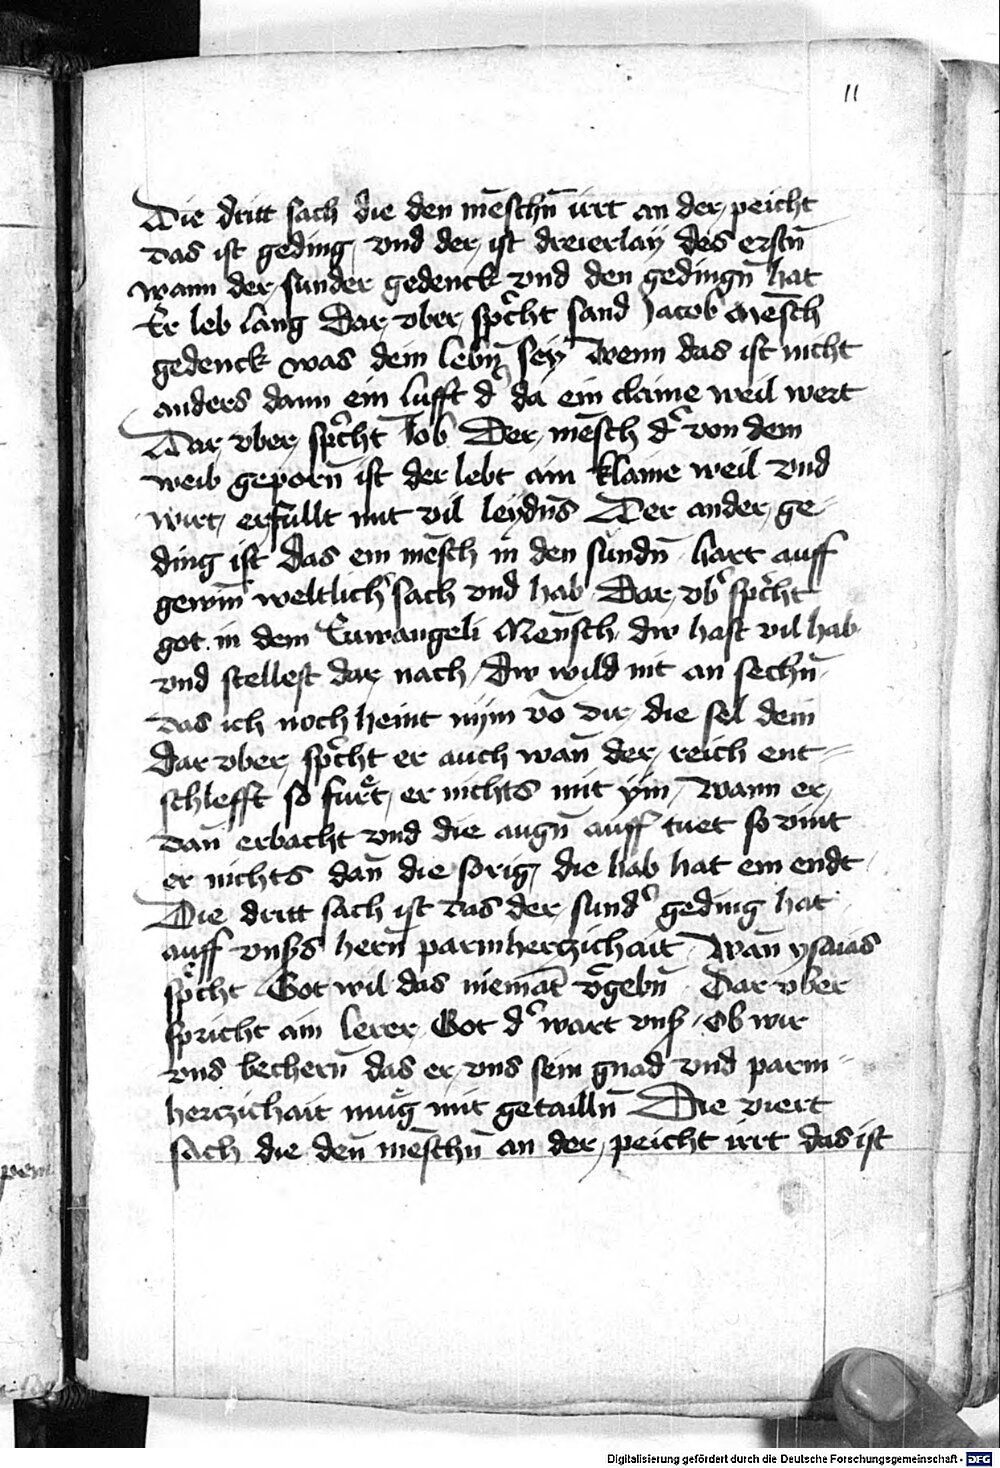 11
Die dritt sach die den mēschn̄ irrt an der peicht
das ist geding vnd der ist dreierlay des erstn̄
wann der sunder gedenck vnd den gedingn̄ hat
Er leb lang Dar vber spͥcht sand Jacob Mēsch
gedenck was dein lebn̄ sey Wenn das ist nicht
anders dann ein lufft dˀ da ein claine weil wert
Dar vber spͥcht Job Der mēsch dˀ von dem
weib geporn̄ ist der lebt ain klaine weil vnd
wirt erfüllt mit vil leydn̄s Der ander ge-
ding ist das ein mēsch in den sündn̄ hart auff
gewin̄ weltlichˀ sach vnd hab Dar vbˀ spͥcht
got in dem Ewangeli Mensch dw hast vil hab
vnd stellest dar nach dw wild nit an sechn̄
das ich noch heint nym vō dir die sel dein
dar vber spͥcht er auch wan̄ der reich ent-
schlefft so fuͤrt er nichts mit ym Wann er
dan̄ erbacht vnd die augn̄ auff tuet so vint
er nichts dan̄ die sorig die hab hat ein endt
Die dritt sach ist das der sundˀ geding hat
auff vnsˢs hern̄ parmherczichait Wan̄ ysaias
spͥcht Got wil das niemāt vˀgebn̄ Dar vber
spricht ain lerer Got dˀ wart vnß ob wir
vns bechern̄ das er vns sein gnad vnd parm-
herczichait muͤg mit getailln̄ Die viert
sach die den̄ mēschn̄ an der peicht irrt das ist
pem
Digitalisierung gefördert durch die Deutsche Forschungsgemeinschaft - DFG